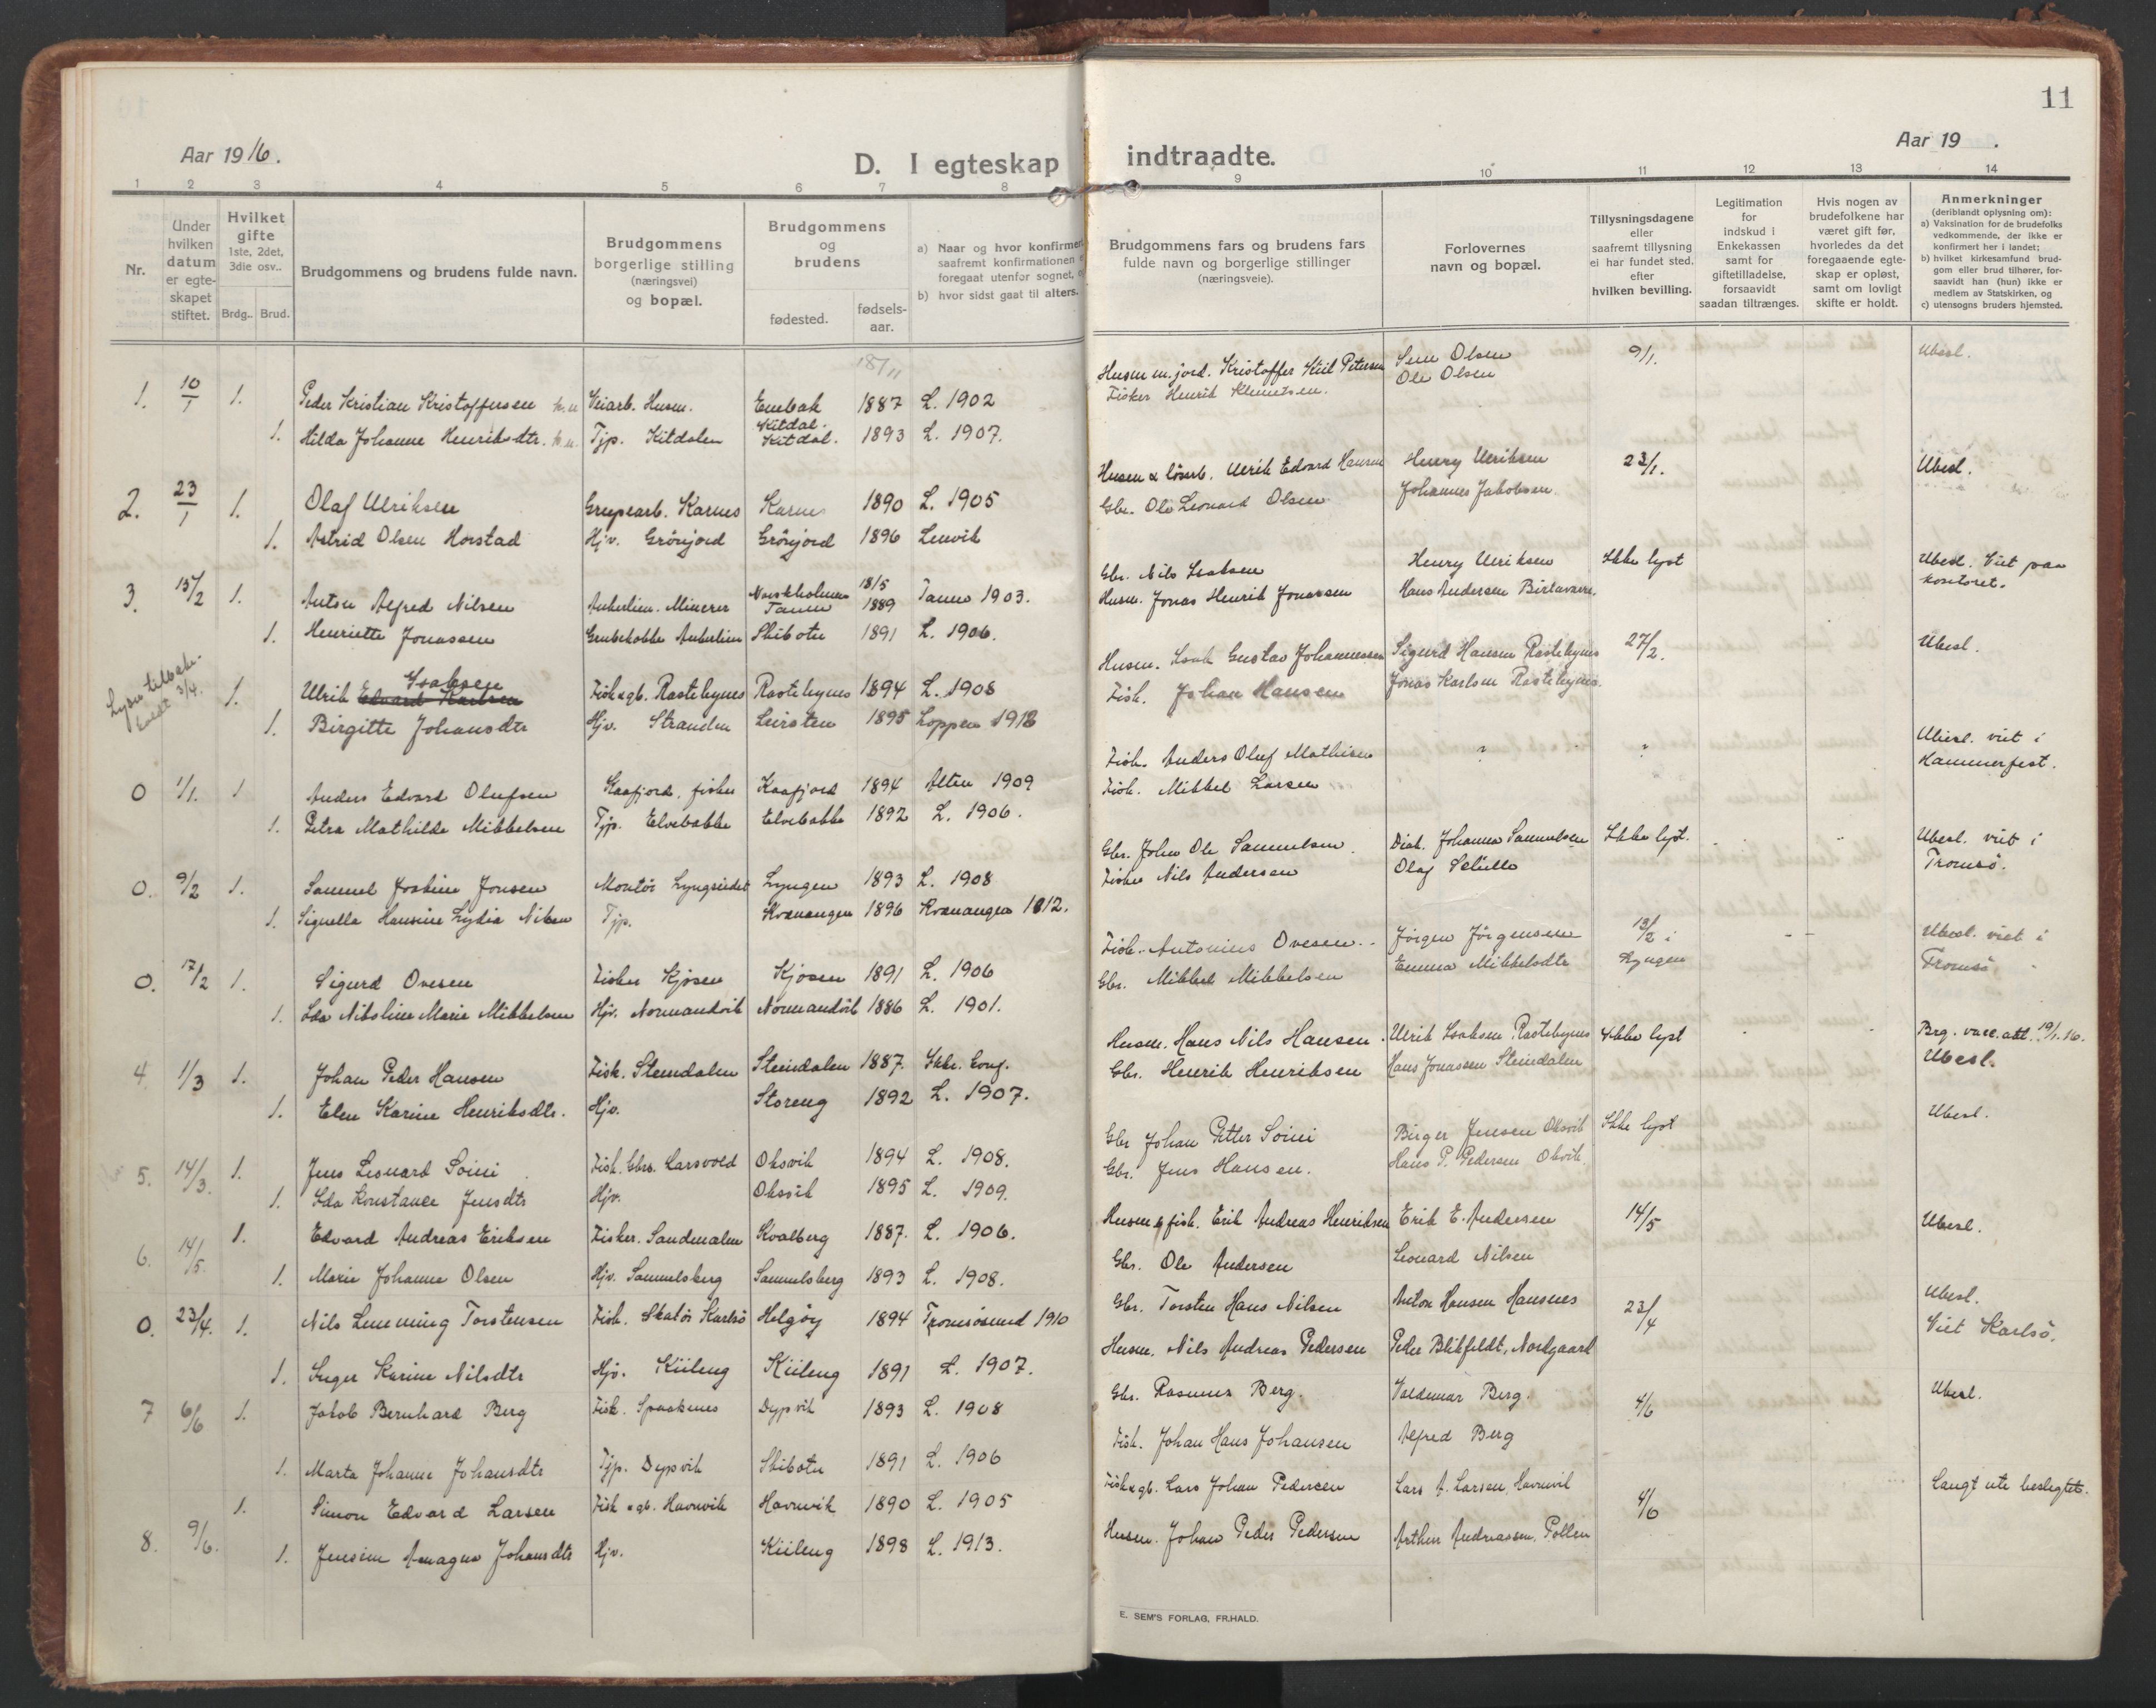 11
Aar 1916.
Aar 19 .
D. I egteskap indtraadte.
1 2 3 4 5 6 7 8 9 10 11 12 13 14
Nr.
Under hvilken datum er egteskapet stiftet.
Hvilket gifte
1ste, 2det, 3die osv..
Brdg.. Brud.
Brudgommens og brudens fulde navn.
Brudgommens borgerlige stilling (næringsvei) og bopæl.
Brudgommens og brudens
fødested.
fødsels-aar.
a) Naar og hvor konfirmert
saafremt konfirmationen
foregaat utenfor sognet,
b) hvor sidst gaat til alters.
Brudgommens fars og brudens fars
fulde navn og borgerlige stillinger
(næringsveie).
Forlovernes
navn og bopæl.
Tillysningsdagene
eller
saafremt tillysning
ei har fundet sted.
efter
hvilken bevilling.
Legitimation
for
indskud i
Enkekassen
samt for
giftetilladelse,
forsaavidt
saadan tiltrænges.
Hvis nogen av
brudefolkene har
været gift før,
hvorledes da det
foregaaende egte-
skap er opløst,
samt om lovligt
skifte er holdt.
Anmerkninger
(deriblandt oplysning om):
a) Vaksination for de brudefolks
vedkommende, der ikke er
konfirmert her i landet;
b) hvilket kirkesamfund brud-
gom eller brud tilhører, for-
saavidt han (hun) ikke er
medlem av Statskirken, og
c) utensogns bruders hjemsted.
1. 10/1 1. Peder Kristian Kristoffersen Veiarb. Husm. 18/11 1887 L. 1902 Husm m. jord. Kristoffer Kiil Petersen Olsen 9/1. Ubesl.
1. Hilda Johanne Henriksdtr. Tjp. Kitdalen Kitdal. Kitdal. 1893 L. 1907. Fisker Henrik Klemetsen. Ole Olsen
2. 23/1 1. Olaf Ulriksen Grupearb. Karnes Karnes 1890 L. 1905 Husm & lösarb. Ulrik Edvard Hansen Henry Ulriksen 23/1. Ubesl.
1. Astrid Olsen Horstad Hjv. Grönjord Grönjord 1896 Lenvik Gbr. Ole Leonard Olsen Johannes Jakobsen.
3. 15/2 1. Anton Alfred Nilsen Ankerlien. Minerer Tanen 18/5 1889 Tanen 1903. Gbr. Nils Isaksen Henry Ulriksen Ikke lyst Ubesl. Viet paa kontoret.
1. Henriette Jonassen Grubekokke Ankerlien Skibotn 1891 L. 1906. Husm. Jonas Henrik Jonassen Hans Andersen Birtavarre.
Lysn. tilbake- 3/4. 1. Ulrik Isaksen Edvard Karlsen Fisk & gb. Rastebynes Rastebynes 1894 L. 1908 Husm. Isak Gustav Johannessen Sigurd Hansen Rastebynes 27/2. Ubesl.
1. Birgitte Johansdtr Hjv. Stranden Leirsten 1895 Loppen 1912 Fisk. Johan Hansen Jonas Karlsen Rastebynes.
0 1/1. 1 Anders Edvard Olufsen Kaafjord, fisker Kaafjord 1894 Alten 1909 Fisk. Anders Oluf Mathisen " " Ubesl. viet i Hammerfest.
1. Petra Mathilde Mikkelsen Tjp. Elvebakke Elvebakke 1892 L. 1906. Fisk. Mikkel Larsen
0. 9/2 1. Samuel Joakim Jonsen Montör Lyngseidet Lyngen 1893 L. 1908 Gbr. John Ole Samuelsen. Diak. Johanna Samuelsen Ikke lyst. Ubesl. viet i Tromsö.
1. Signella Hansine Lydia Nilsen Tjp. Kvænangen 1896 Kvænangen 1912. Fisker Nils Andersen Olaf
0. 17/2 1. Sigurd Ovesen Fisker Kjosen Kjosen 1891 L. 1906 Fisk. Antonius Ovesen. Jörgen Jörgensen 13/2 i Lyngen Ubesl. viet i Tromsö
1. Ida Nikoline Marie Mikkelsen Hjv. Normandvik Normandvik 1886 L. 1901. Gbr. Mikkel Mikkelsen Emma Mikkelsdtr
4 1/3 1. Johan Peder Hansen Fisk. Steindalen Steindalen 1887. Ikke. konf. Husm. Hans Nils Hansen. Ulrik Isaksen Rastebynes Ikke lyst Brg. vacc. att. 19/1.16. Ubesl.
1. Elen Karine Henriksdtr. Hjv. Storeng 1892 L. 1907. Gbr. Henrik Henriksen Hans Jonassen Steindalen
5. 14/3. 1. Jens Leonard Soini Fisk. Gbrs. Larsvold Oksvik 1894 L. 1908. Gbr Johan Petter Soini Birger Jensen Oksvik Ikke lyst Ubesl.
1. Ida Konstance Jensdtr Hjv. Oksvik 1895 L. 1909. Gbr. Jens Hansen. Hans P. Pedersen Oksvik.
6. 14/5. 1. Edvard Andreas Eriksen Fisker. Sandmalen Kvalberg 1887. L. 1906. Husm & fisk. Erik Andreas Henriksen Erik E. Andersen 14/5 Ubesl.
1. Marie Johanne Olsen Hjv. Samuelsberg Samuelsberg 1893 L. 1908. Gbr. Ole Andersen Leonard Nilsen
0. 23/4. 1. Nils Lemming Torstensen Fisk. Skatör Karlsö Helgöy 1894 Tromsösund 1910 Gbr. Torsten Hans Nilsen Anton Hansen Hansnes 23/4 Ubesl. Viet Karlsö.
1. Inger Karine Nilsdtr Hjv. Kiileng Kiileng 1891 L. 1907. Husm. Nils Andreas Pedersen Peder Blikfeldt, Nordgaard
7 6/6 1. Jakob Bernhard Berg Fisk. Spaaknes Dypvik 1893 L. 1908 Gbr. Rasmus Berg. Valdemar Berg. 4/6 Ubesl.
1. Marta Johanne Johansdtr Tjp. Dypvik Skibotn 1891 L. 1906 Fisk. Johan Hans Johansen Alfred Berg
8. 9/6. 1. Simon Edvard Larsen Fisk & gb. Havnvik Havnvik 1890 L. 1905 Fisk & gb. Lars Johan Pedersen Lars A. Larsen, Havnvik 4/6 Langt ute beslegtet.
1. Jensine Amagna Johansdtr Hjv. Kiileng 1898 L. 1913. Husm. Johan Peder Pedersen Arthur Andreassen, Pollen
E. SEM'S FORLAG, FR.HALD.